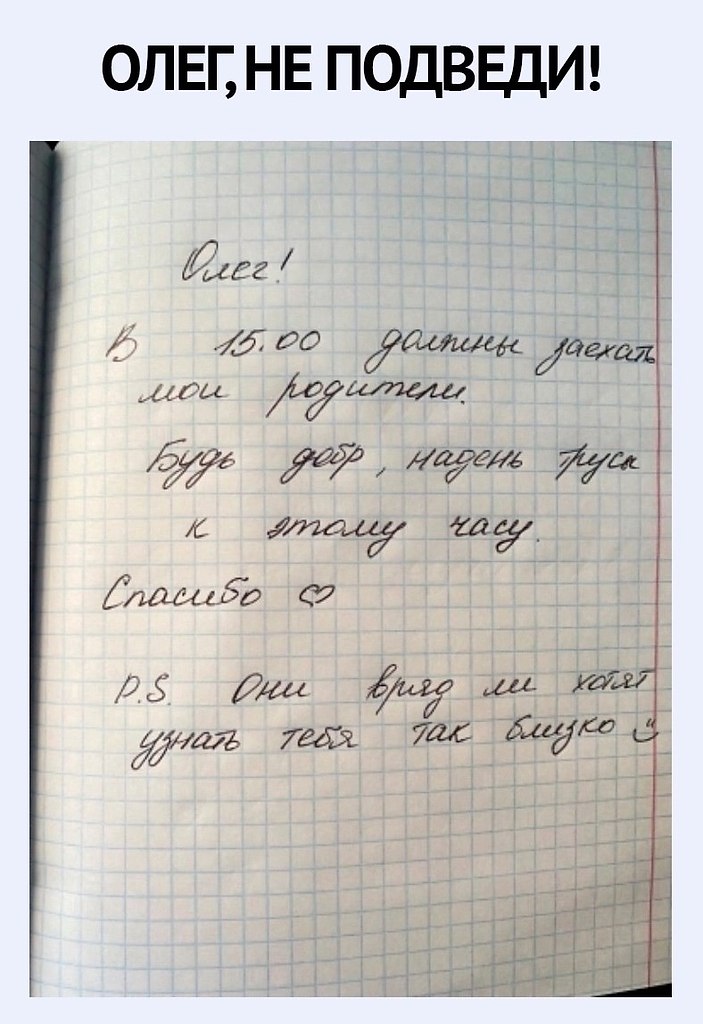 ОЛЕГ, НЕ ПОДВЕДИ!
Олег!
В 15.00 должны заехать
мои родители.
Будь добр, надень трусы
к этому часу.
Спасибо ♡
P.S. Они вряд ли хотят
узнать тебя так близко